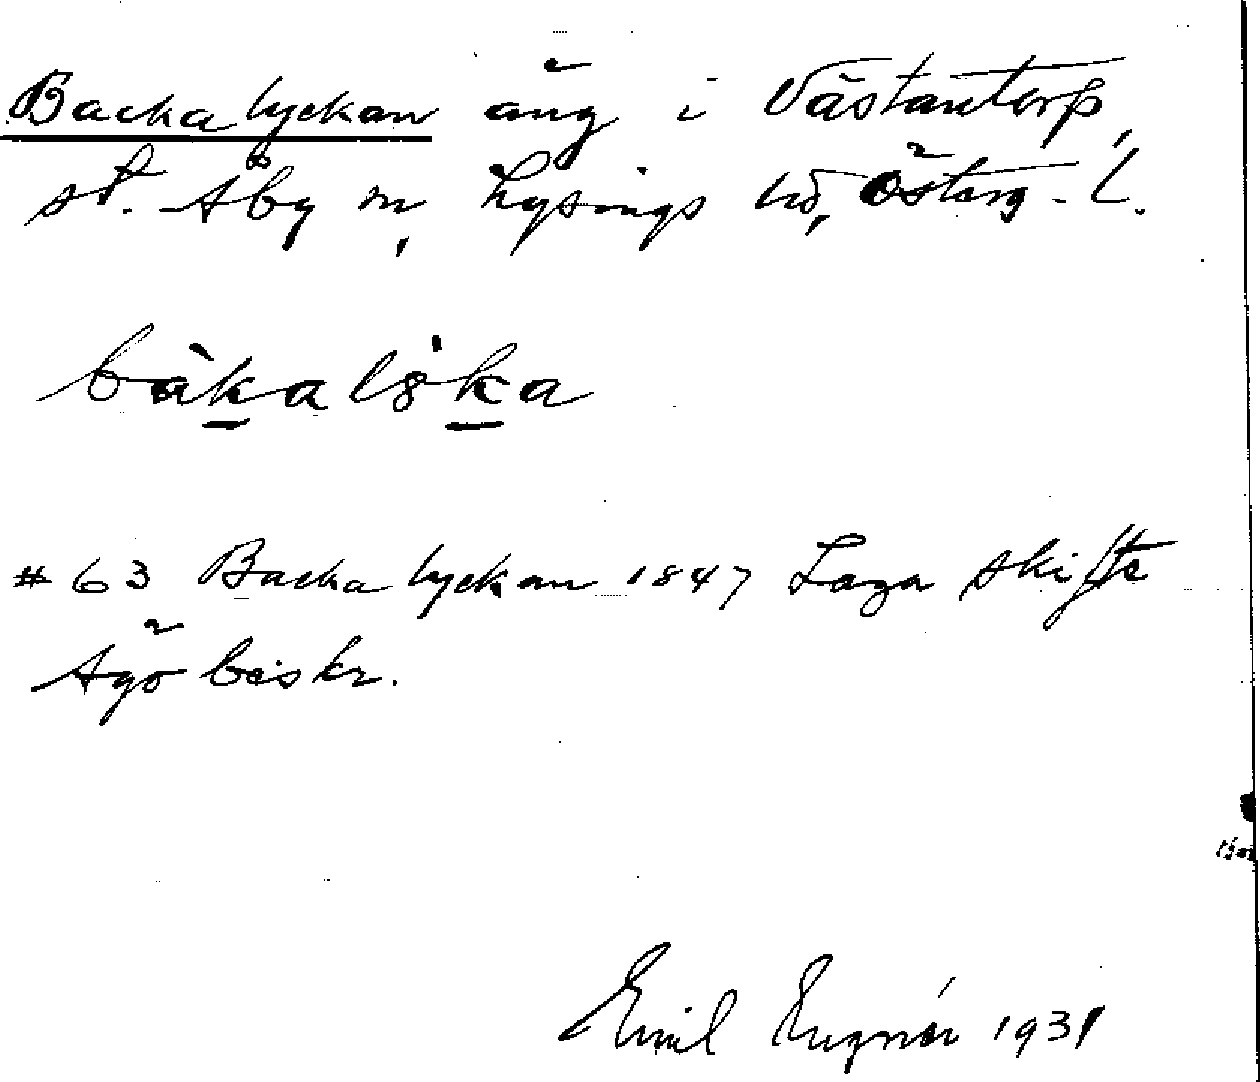 Backalyckan äng i Västantorp,
st. Åby sn, Lysings hd, Österg. L.
bàkalỳka
# 63 Backalyckan 1847 Laga skifte
Ägobeskr.
Emil 1931